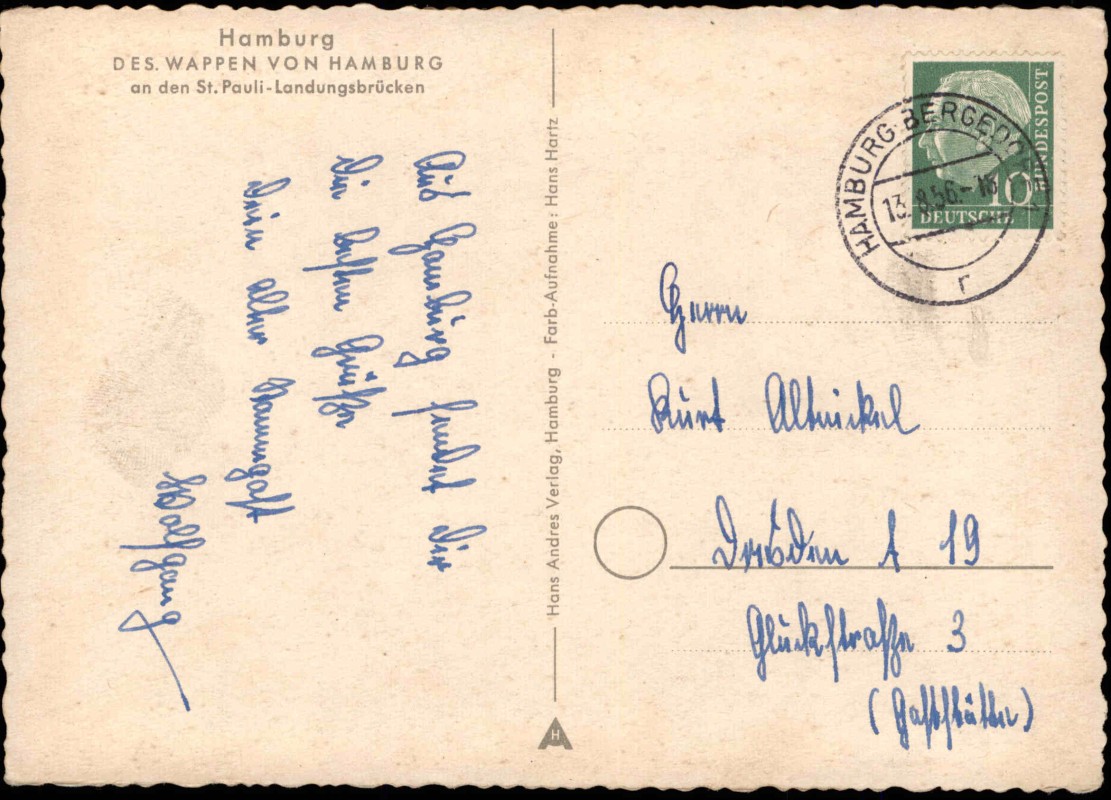 Hamburg
DES. WAPPEN VON HAMBURG
an den St. Pauli-Landungsbrücken
Aus Hamburg sendet Dir
die besten Grüße
Dein alter Stammgast
Wolfgang
Hans Andres Verlag, Hamburg - Farb-Aufnahme: Hans Hartz
H
DEUTSCHE BUNDESPOST
10
HAMBURG-BERGEDORF
13.8.56.-18
r
Herrn
Kurt Altnickel
Dresden A 19
Glückstraße 3
(Gaststätte)